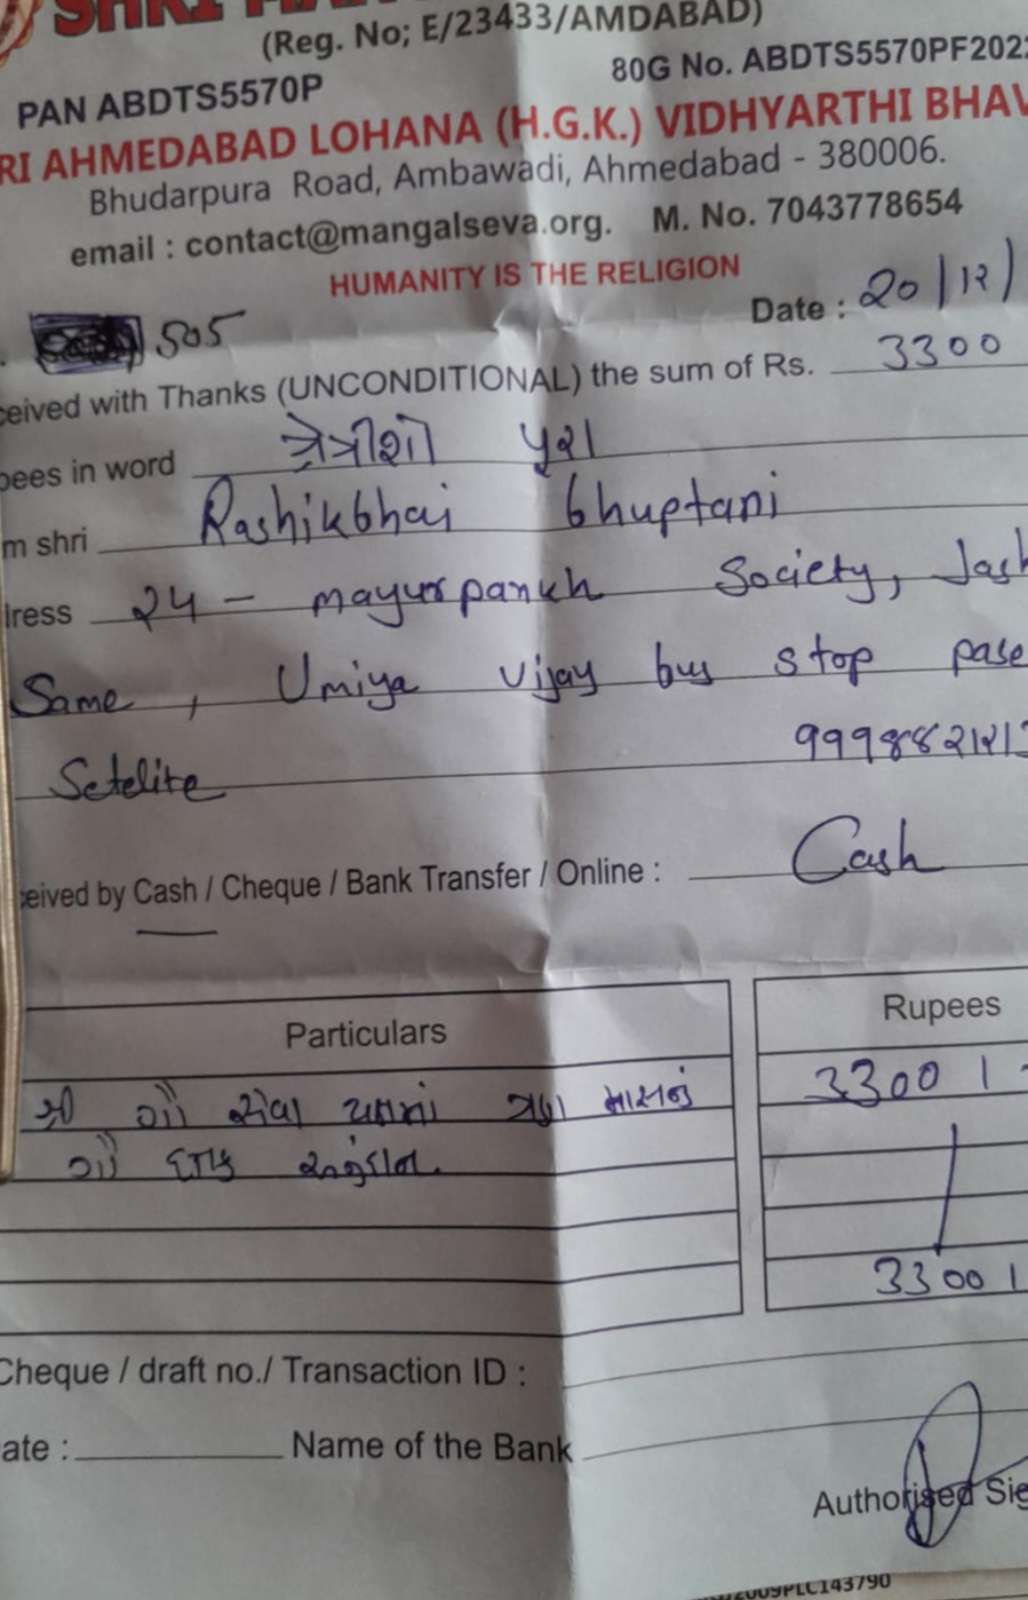 SHRI
(Reg. No; E/23433/AMDABAD)
PAN ABDTS5570P 80G No. ABDTS5570PF202
RI AHMEDABAD LOHANA (H.G.K.) VIDHYARTHI BHAV
Bhudarpura Road, Ambawadi, Ahmedabad - 380006.
email : contact@mangalseva.org. M. No. 7043778654
HUMANITY IS THE RELIGION
Date : 20/12/
505
ceived with Thanks (UNCONDITIONAL) the sum of Rs. 3300
pees in word તેત્રીશો પુરા
m shri Rashikbhai bhuptani
dress 24 - mayurpankh Society, Jash
Same, Umiya vijay bus stop pase
Setelite
ceived by Cash / Cheque / Bank Transfer / Online : Cash
Particulars Rupees
શ્રી ગૌ સેવા 3300/-
ગૌ
3300/
Cheque / draft no./ Transaction ID :
ate : Name of the Bank
Authorised Sig
2009PLC143790